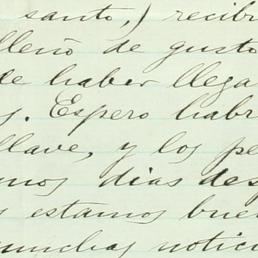 santo,) recib
lleno de gusto
de haber llega
s. Espero habr
llave, y los pe
mos dias des
s estamos bue
muchas notici